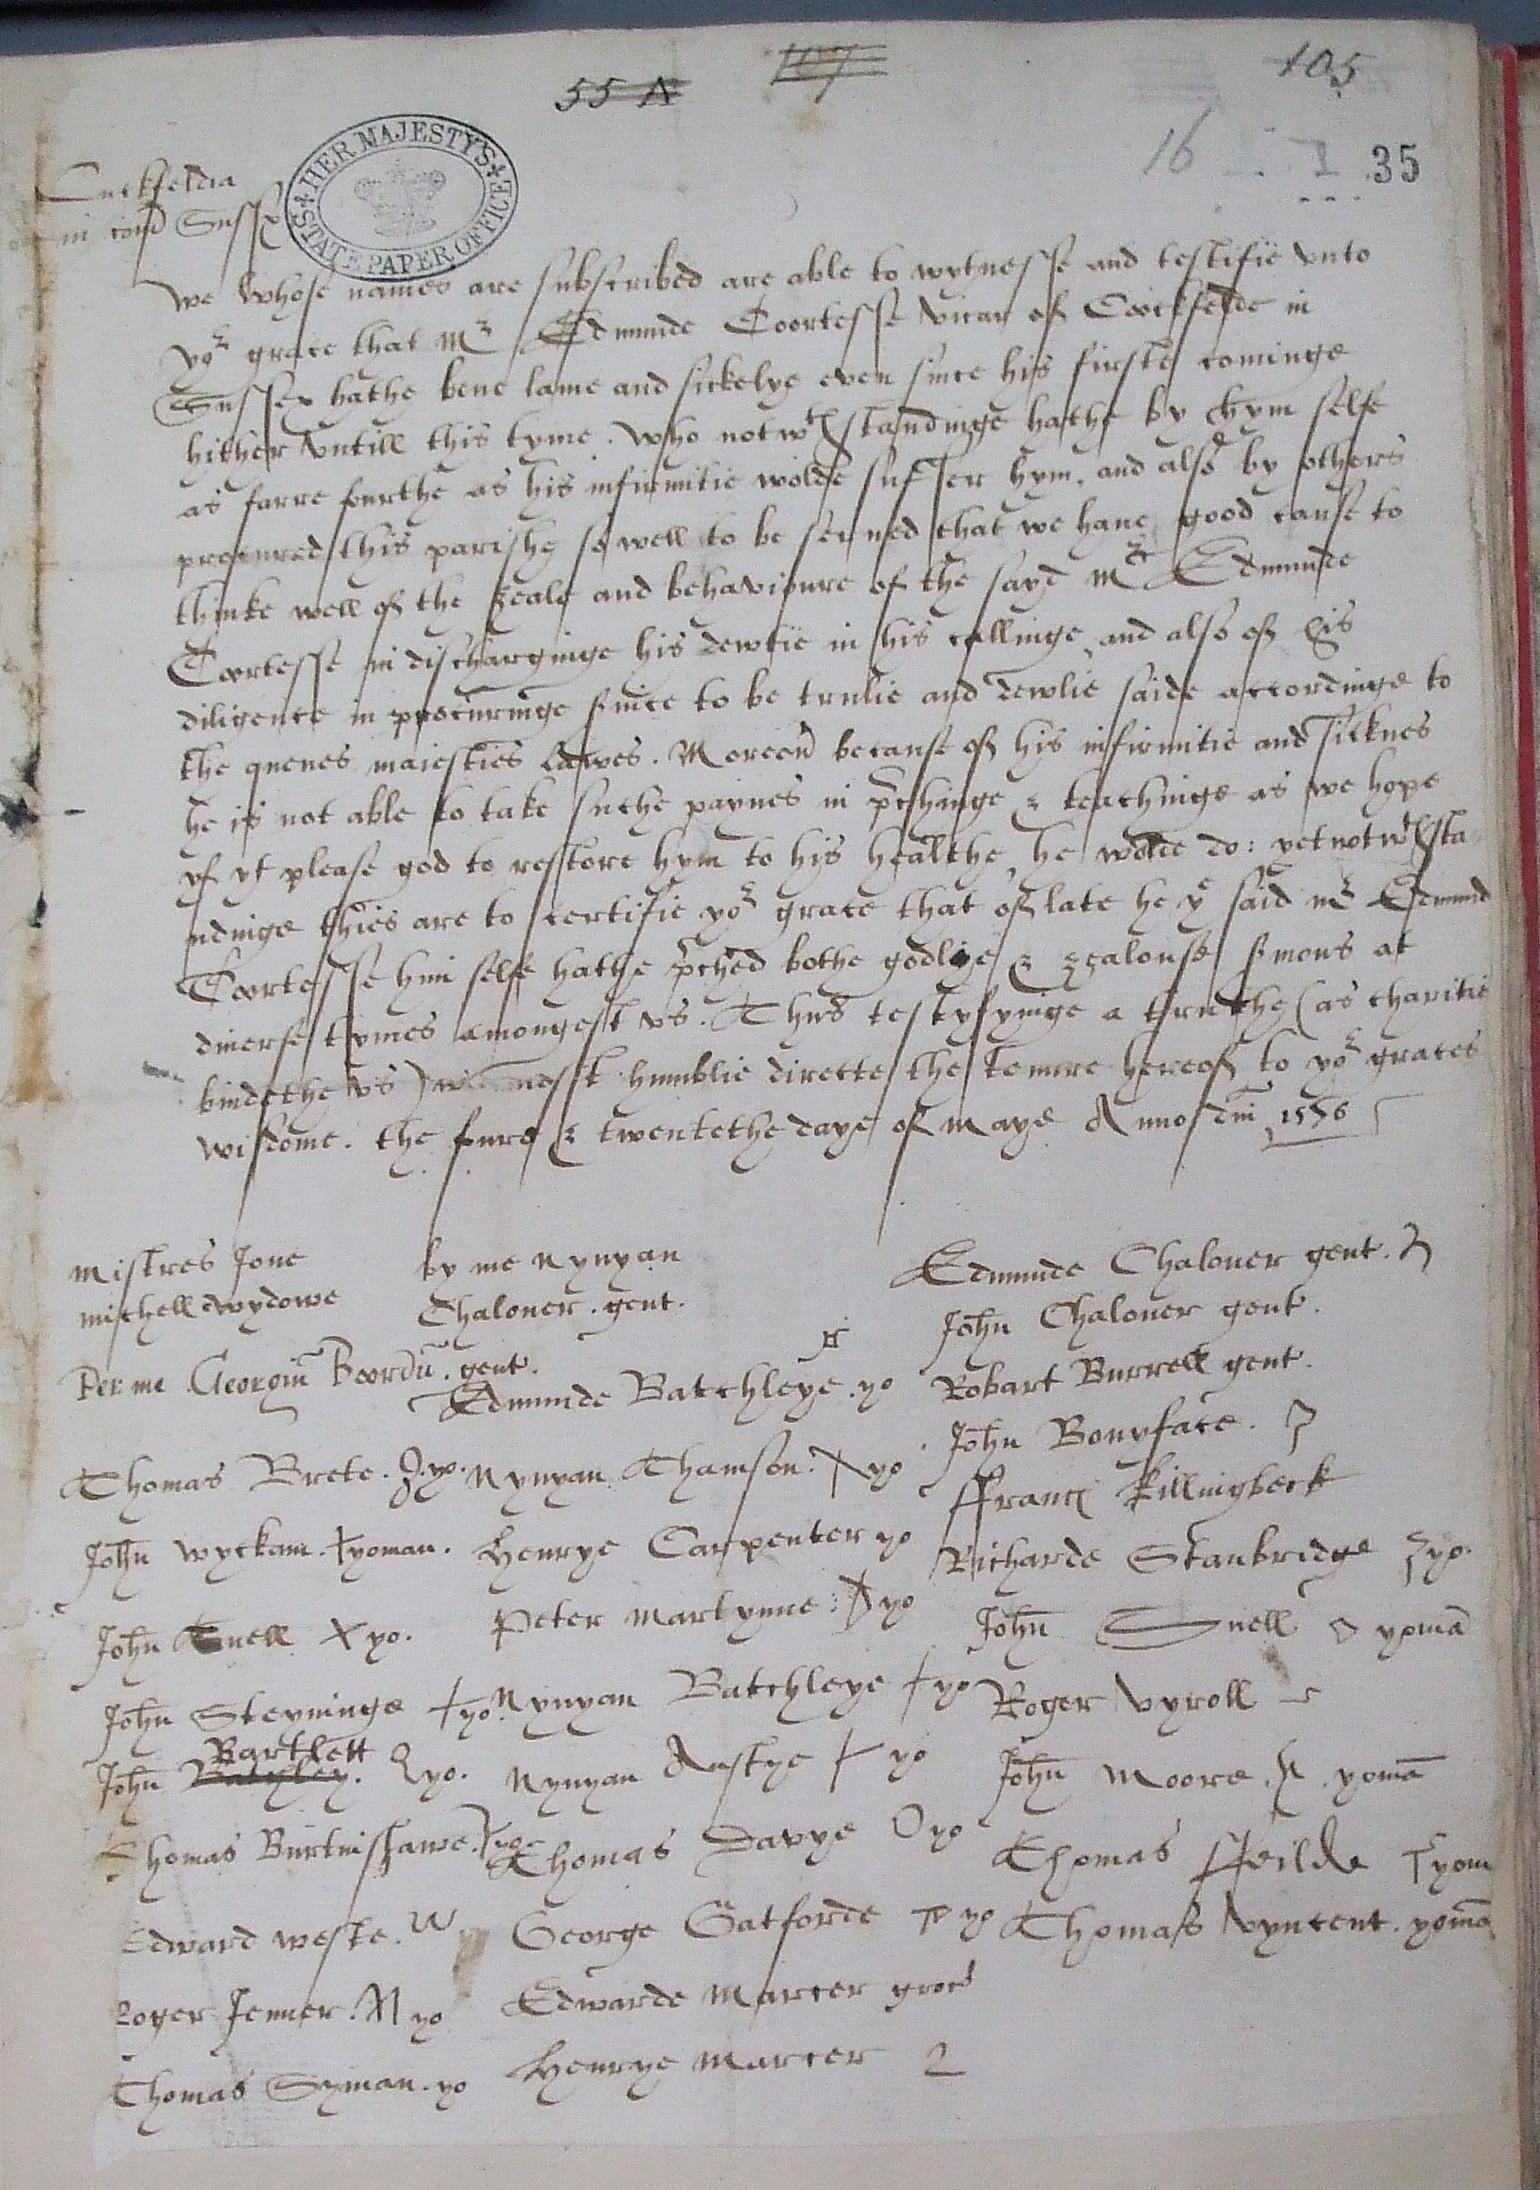 55 A
107
105
16 1 35
HER MAJESTY'S STATE PAPER OFFICE
Cuckfeldia
in com Sussex
We whose names are subscribed are able to wytnesse and testifie vnto
yor grace that Mr Edmunde Coortesse vicar of Coockfelde in
Sussex hathe bene lame and sickelye even since his firste cominge
hither vntill this tyme. Who notwthstandinge hathe by hym selfe
as farre fourthe as his infirmitie wolde suffer hym, and also by others
procured this parishe so well to be serued that we haue good cause to
thinke well of the zeale and behavioure of the sayd Mr Edmunde
Coortesse in discharginge his dewtie in his callinge and also of his
diligence in procuringe suice to be trulie and dewlie saide accordinge to
the quenes maiesties Lawes. Moreou because of his infirmitie and sicknes
he is not able to take suche paynes in pchinge & teachinge as we hope
yf yt please god to restore hym to his healthe he wolde do: yet notwthsta
ndinge thies are to certifie yor grace that of late he ye said mr Edmund
Coortesse hym selfe hathe pched bothe godlye & zealouse smons at
diuerse tymes amongest vs. Thus testyfyinge a truthe (as charitie
bindethe vs) humblie directe the tenure hereof to yor graces
wisdome. the foure & twentethe daye of Maye Anno dni 1576
Mistres Jone by me Nynyan Edmunde Chaloner gent.
Michell wydowe Chaloner. gent. John Chaloner gent.
Per me Georgiu Boordu. gent. Edmunde Batchleye. yo Robart Burrell gent.
John Bonyface.
Thomas Brete. yo. Nynyan Thamson. yo Franc Killingbeck
John Wyckam. yoman. Henrye Carpenter yo Richarde Stanbridge yo.
John Tuell X yo. Peter Martynne yo John Snell yoma
John Steyninge yo. Nynyan Batchleye yo Roger Vyroll
Bartlett
John Batchley. yo. Nynyan Anstye yo John Moore. yoma
Thomas Burtinshawe. yo Thomas Davye yo Thomas Feilde yom
Edward Weste. W George Gatforde yo Thomas Vyncent. yoma
Roger Jenner. yo Edwarde Marcer
Thomas Syman. yo Henrye Marcer